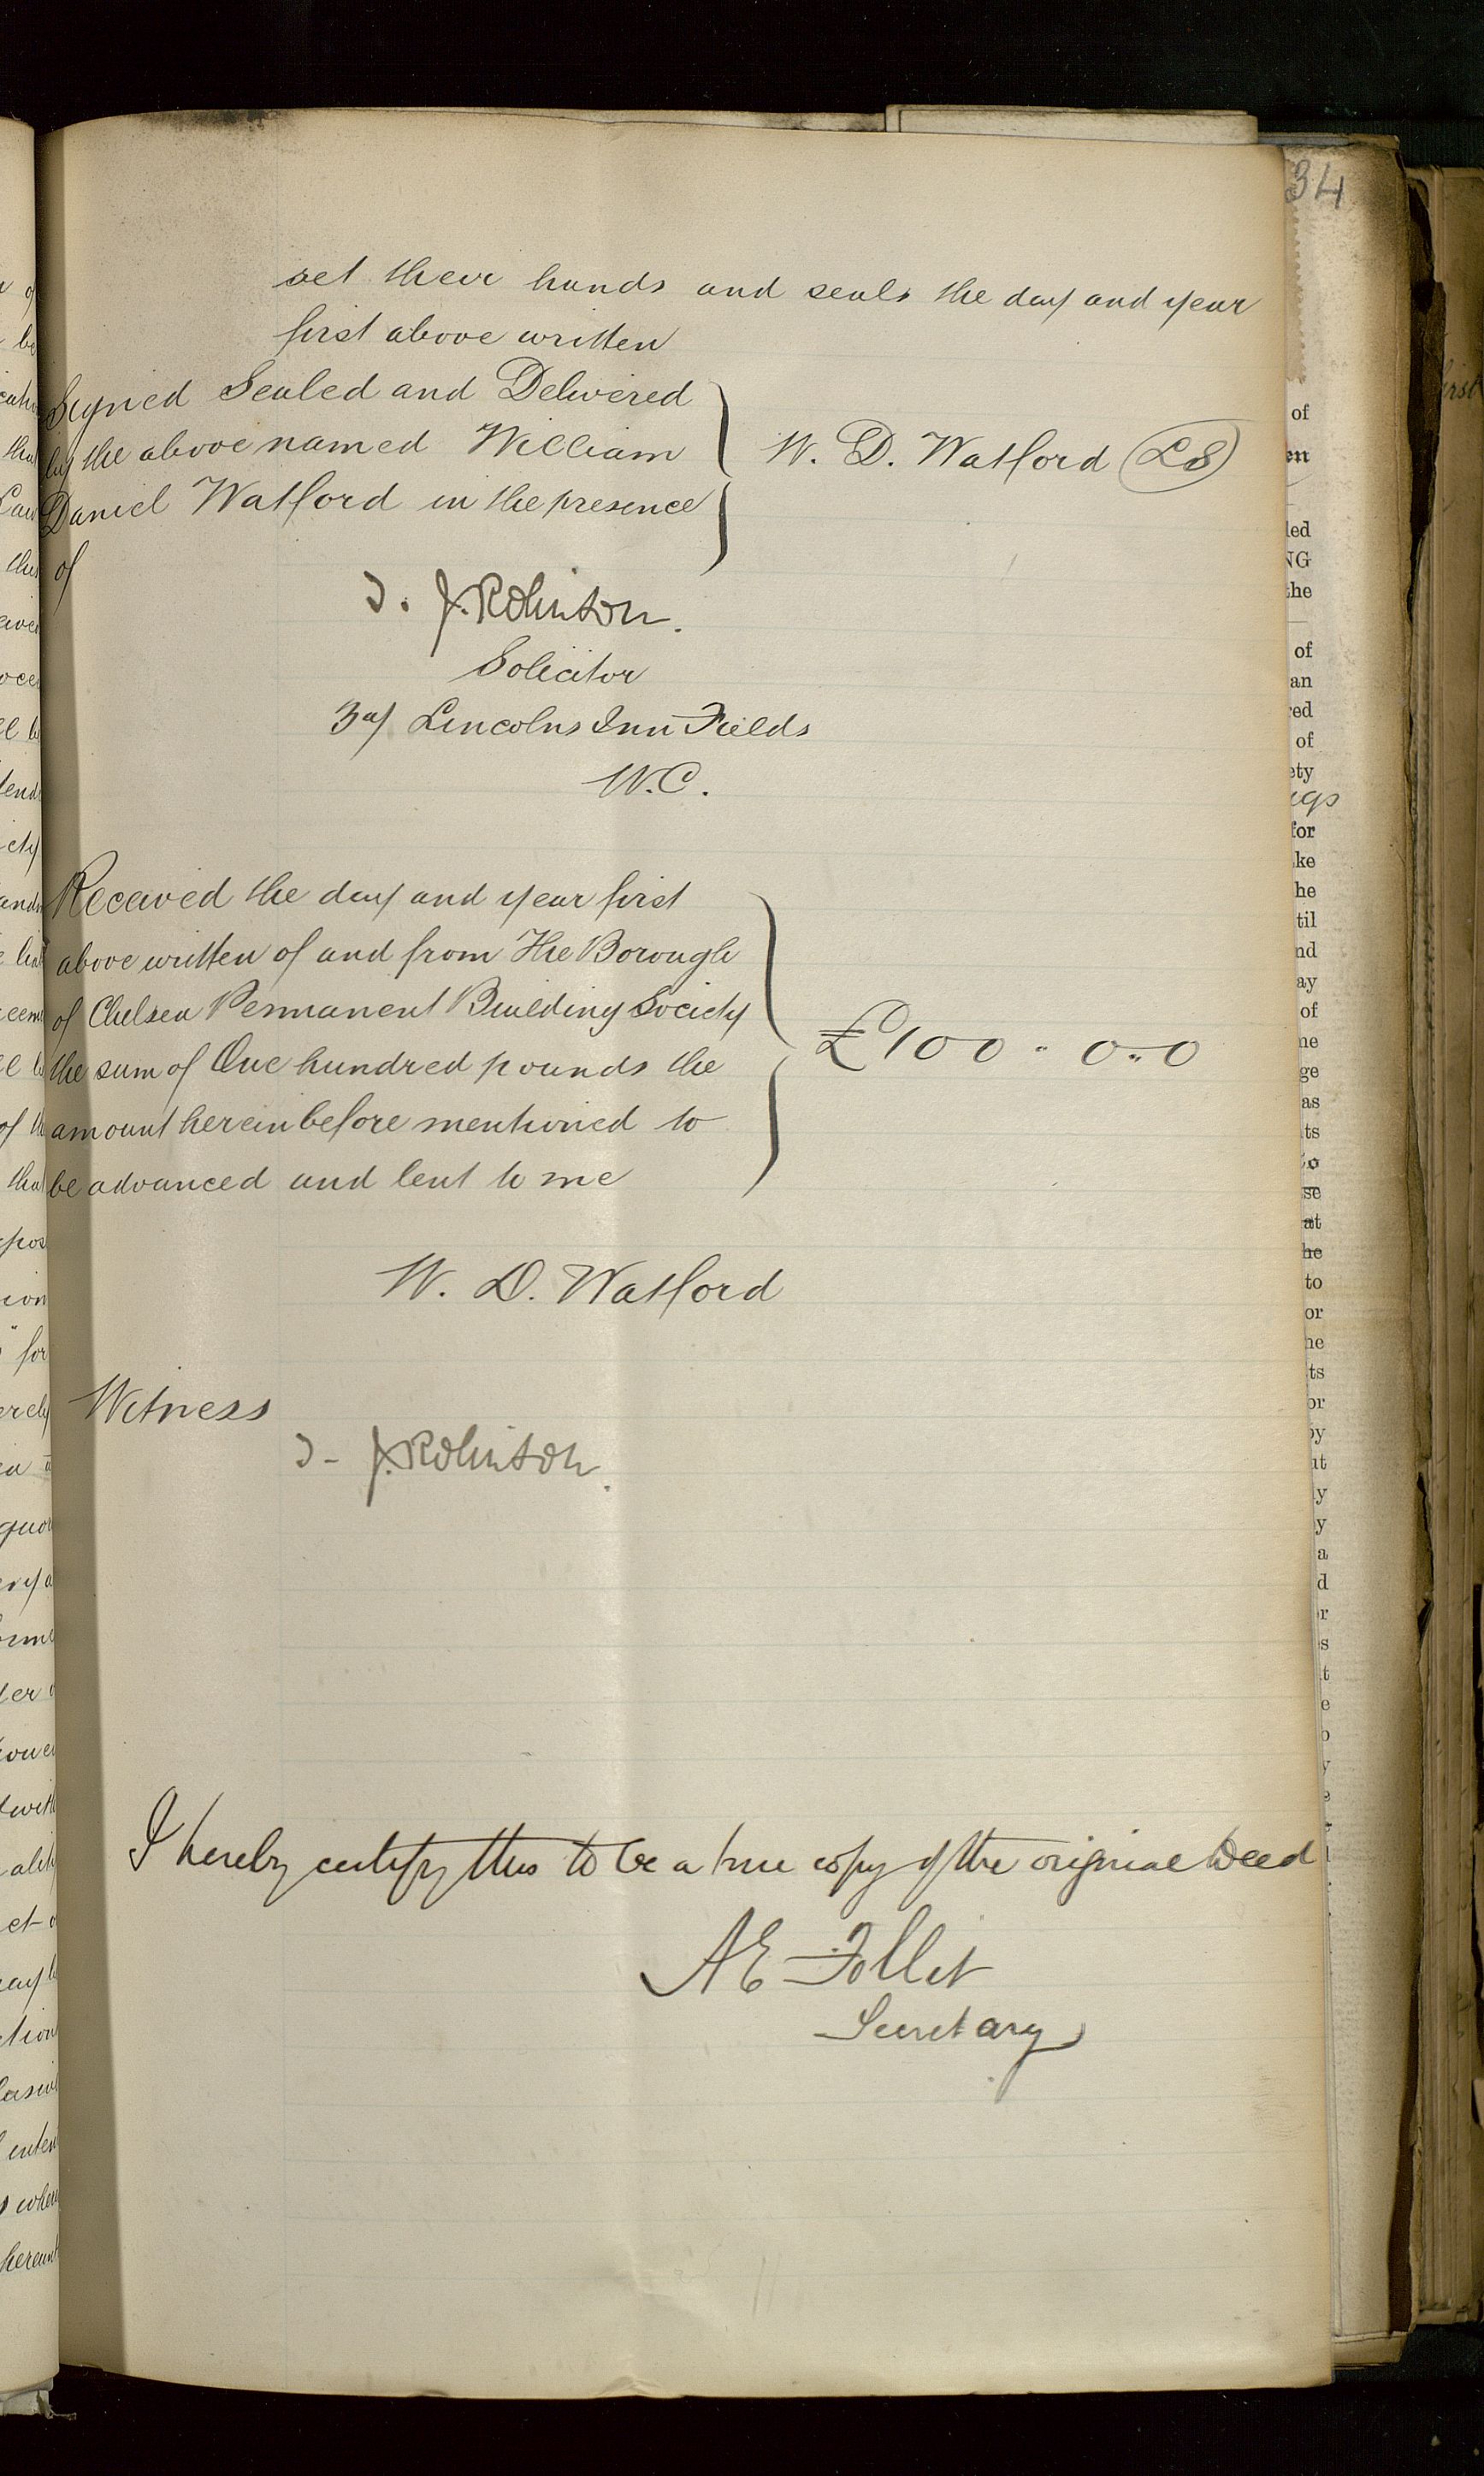 34
set their hands and seals the day and year
first above written
Signed Sealed and Delivered
by the above named William
Daniel Watford in the presence
of
W. D. Watford (LS)
J. J. Robinson.
Solicitor
3a/ Lincolns Inn Fields
W.C.
Received the day and year first
above written of and from The Borough
of Chelsea Permanent Building Society
the sum of One hundred pounds the
amount hereinbefore mentioned to
be advanced and lent to me
£100 " 0 " 0
W. D. Watford
Witness
J- J. Robinson.
I hereby certify this to be a true copy of the original Deed
A E Follit
Secretary